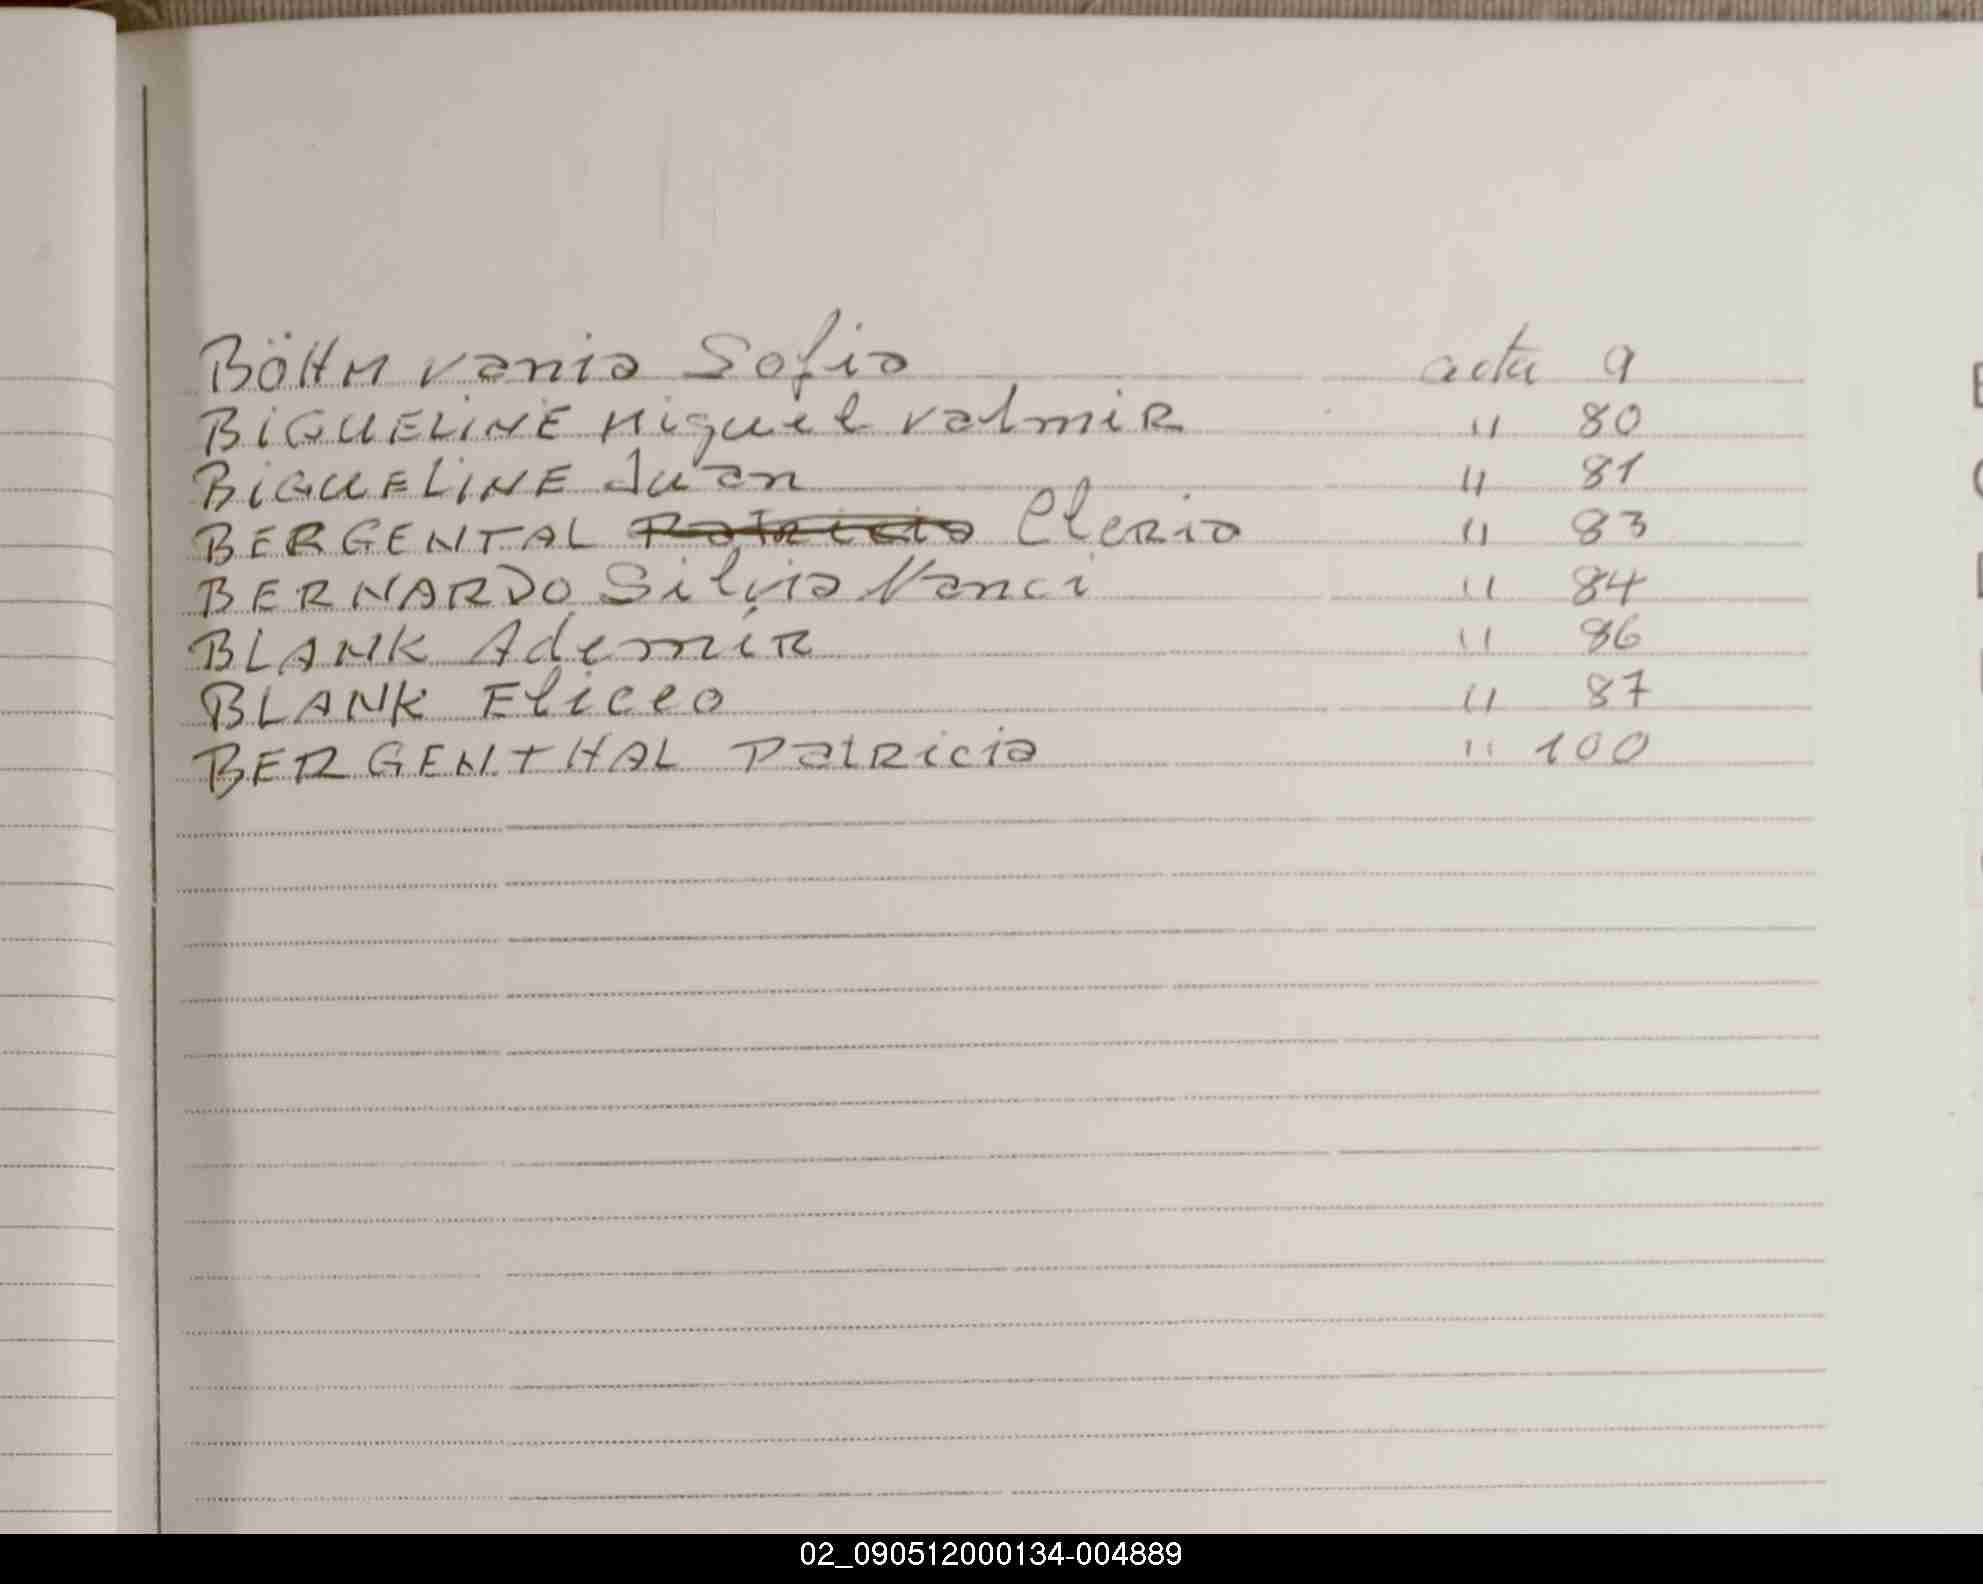 BÖHM Vania Sofia acta 9
BIGUELINE Miguel Valmir " 80
BIGUELINE Juan " 81
BERGENTAL Patricia Cleria " 83
BERNARDO Silvia Nanci " 84
BLANK Ademir " 86
BLANK Eliceo " 87
BERGENTHAL Patricia " 100
02_090512000134-004889